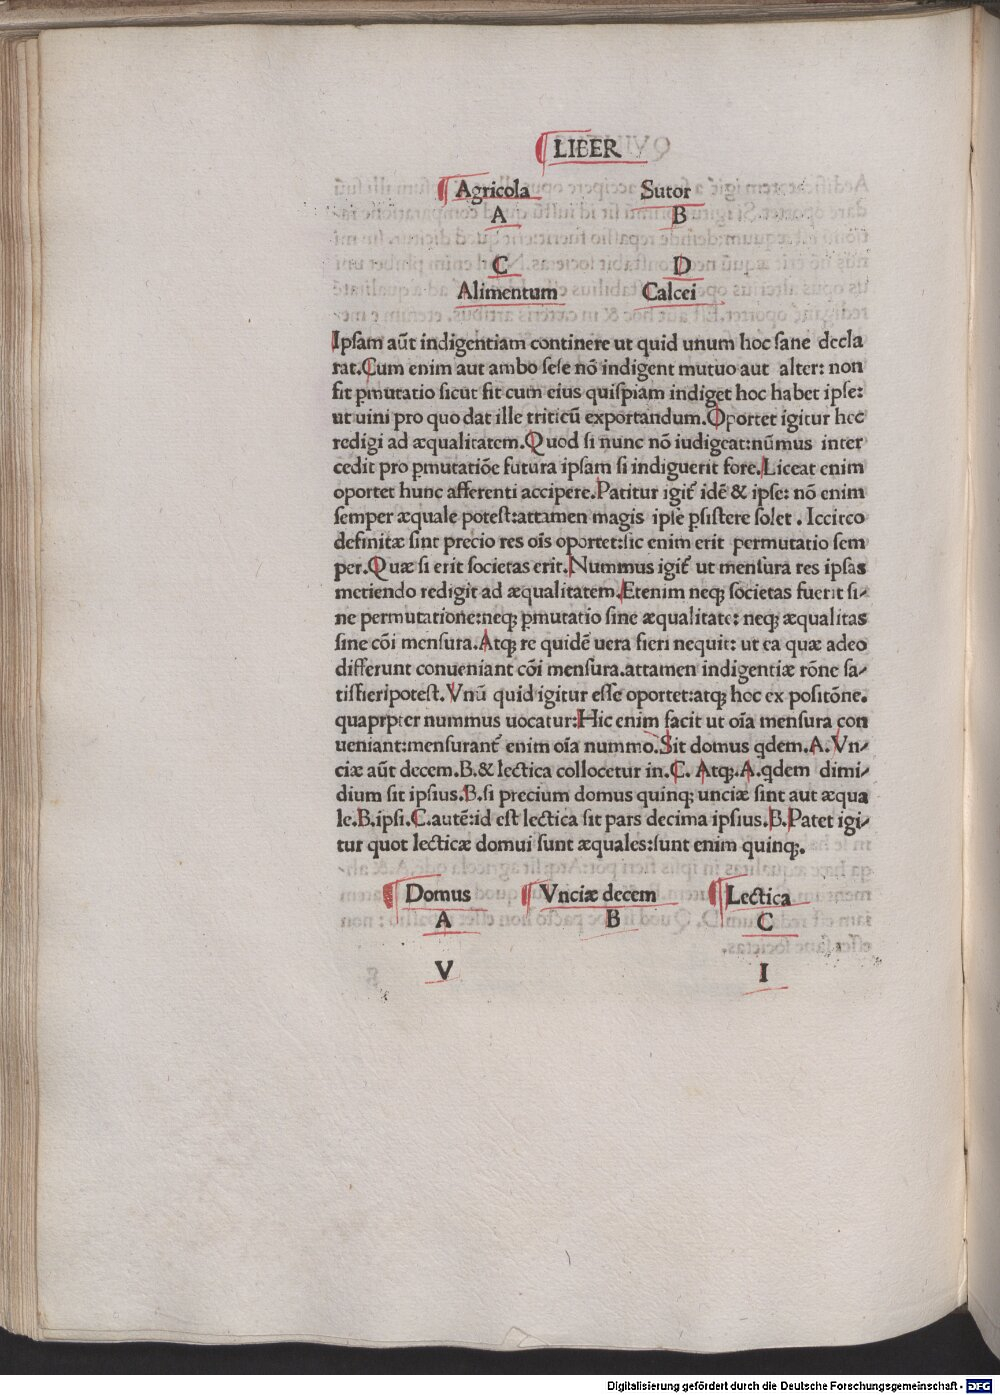 LIBER
Agricola Sutor
A B
C D
Alimentum Calcei
Ipsam aūt indigentiam continere ut quid unum hoc sane decla
rat.Cum enim aut ambo sese nō indigent mutuo aut alter: non
fit pmutatio sicut fit cum eius quispiam indiget hoc habet ipse:
ut uini pro quo dat ille triticū exportandum.Oportet igitur hec
redigi ad æqualitatem.Quod si nunc nō iudigeat:nūmus inter
cedit pro pmutatiōe futura ipsam si indiguerit fore.Liceat enim
oportet hunc afferenti accipere.Patitur igit̄ idē & ipse: nō enim
semper æquale potest:attamen magis ipse psistere solet . Iccirco
definitæ sint precio res ois oportet:sic enim erit permutatio sem
per.Quæ si erit societas erit.Nummus igit̄ ut mensura res ipsas
metiendo redigit ad æqualitatem.Etenim neq; societas fuerit si-
ne permutatione:neq; pmutatio sine æqualitate: neq; æqualitas
sine cōi mensura.Atq; re quidē uera fieri nequit: ut ea quæ adeo
differunt conueniant cōi mensura.attamen indigentiæ rōne sa-
tisfieripotest.Vnū quid igitur esse oportet:atq; hoc ex positōne.
quaprpter nummus uocatur:Hic enim facit ut oīa mensura con
ueniant:mensurant̄ enim oīa nummo.Sit domus qdem.A.Vn-
ciæ aūt decem.B.& lectica collocetur in.C. Atq;.A.qdem dimi-
dium sit ipsius.B.si precium domus quinq; unciæ sint aut æqua
le.B.ipsi.C.autē:id est lectica sit pars decima ipsius.B.Patet igi-
tur quot lecticæ domui sunt æquales:sunt enim quinq;.
Domus Vnciæ decem Lectica
A B C
V I
Digitalisierung gefördert durch die Deutsche Forschungsgemeinschaft - DFG